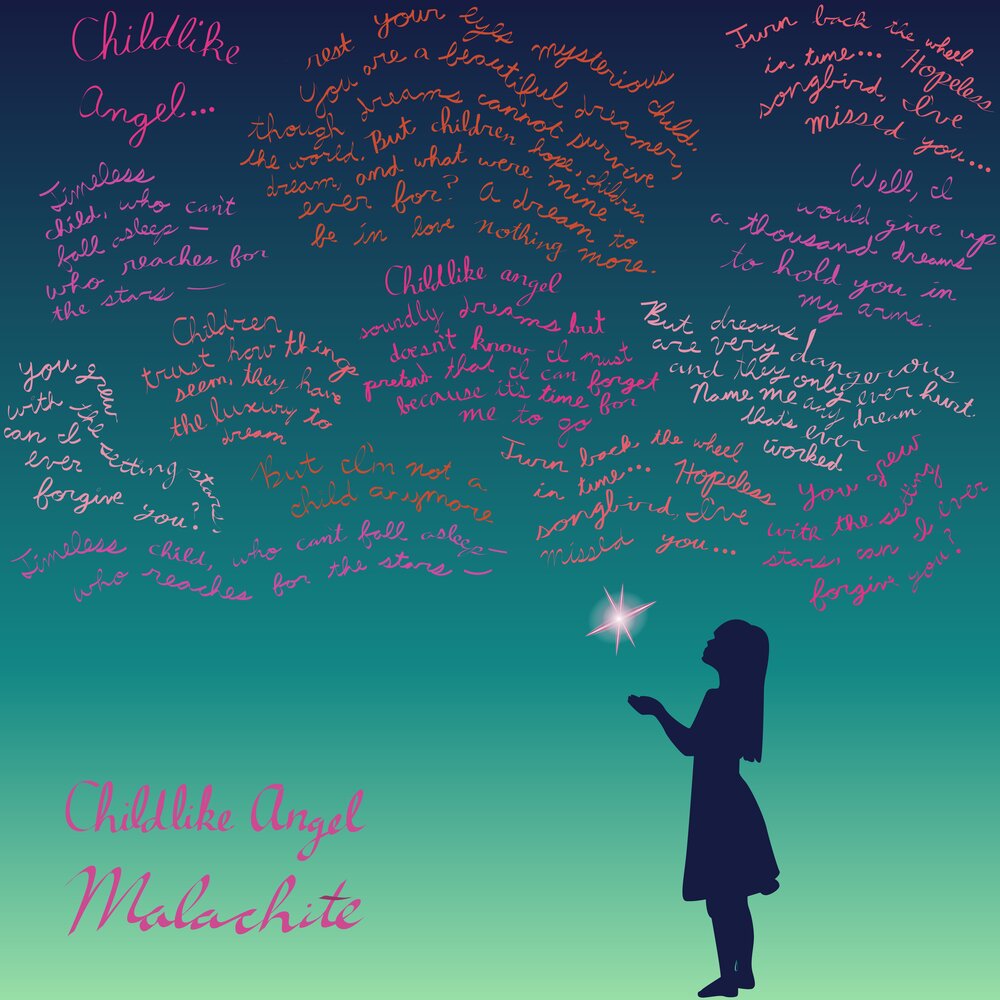 Childlike
Angel...
rest your eyes mysterious child.
You are a beautiful dreamer,
though dreams cannot survive
the world. But children hope, children
dream, and what were mine
ever for? A dream to
be in love nothing more.
Turn back the wheel
in time... Hopeless
songbird, I've
missed you...
Timeless
child, who can't
fall asleep —
who reaches for
the stars —
Well, I
would give up
a thousand dreams
to hold you in
my arms.
Children
trust how things
seem, they have
the luxury to
dream
Childlike angel
soundly dreams but
doesn't know I must
pretend that I can forget
because it's time for
me to go
But dreams
are very dangerous
and they only ever hurt.
Name me any dream
that's ever
worked
you grew
with the setting stars,
can I
ever
forgive you?
But I'm not a
child anymore
Turn back the wheel
in time... Hopeless
songbird, I've
missed you...
you grew
with the setting
stars, can I ever
forgive you?
Timeless child, who can't fall asleep—
who reaches for the stars —
Childlike Angel
Malachite